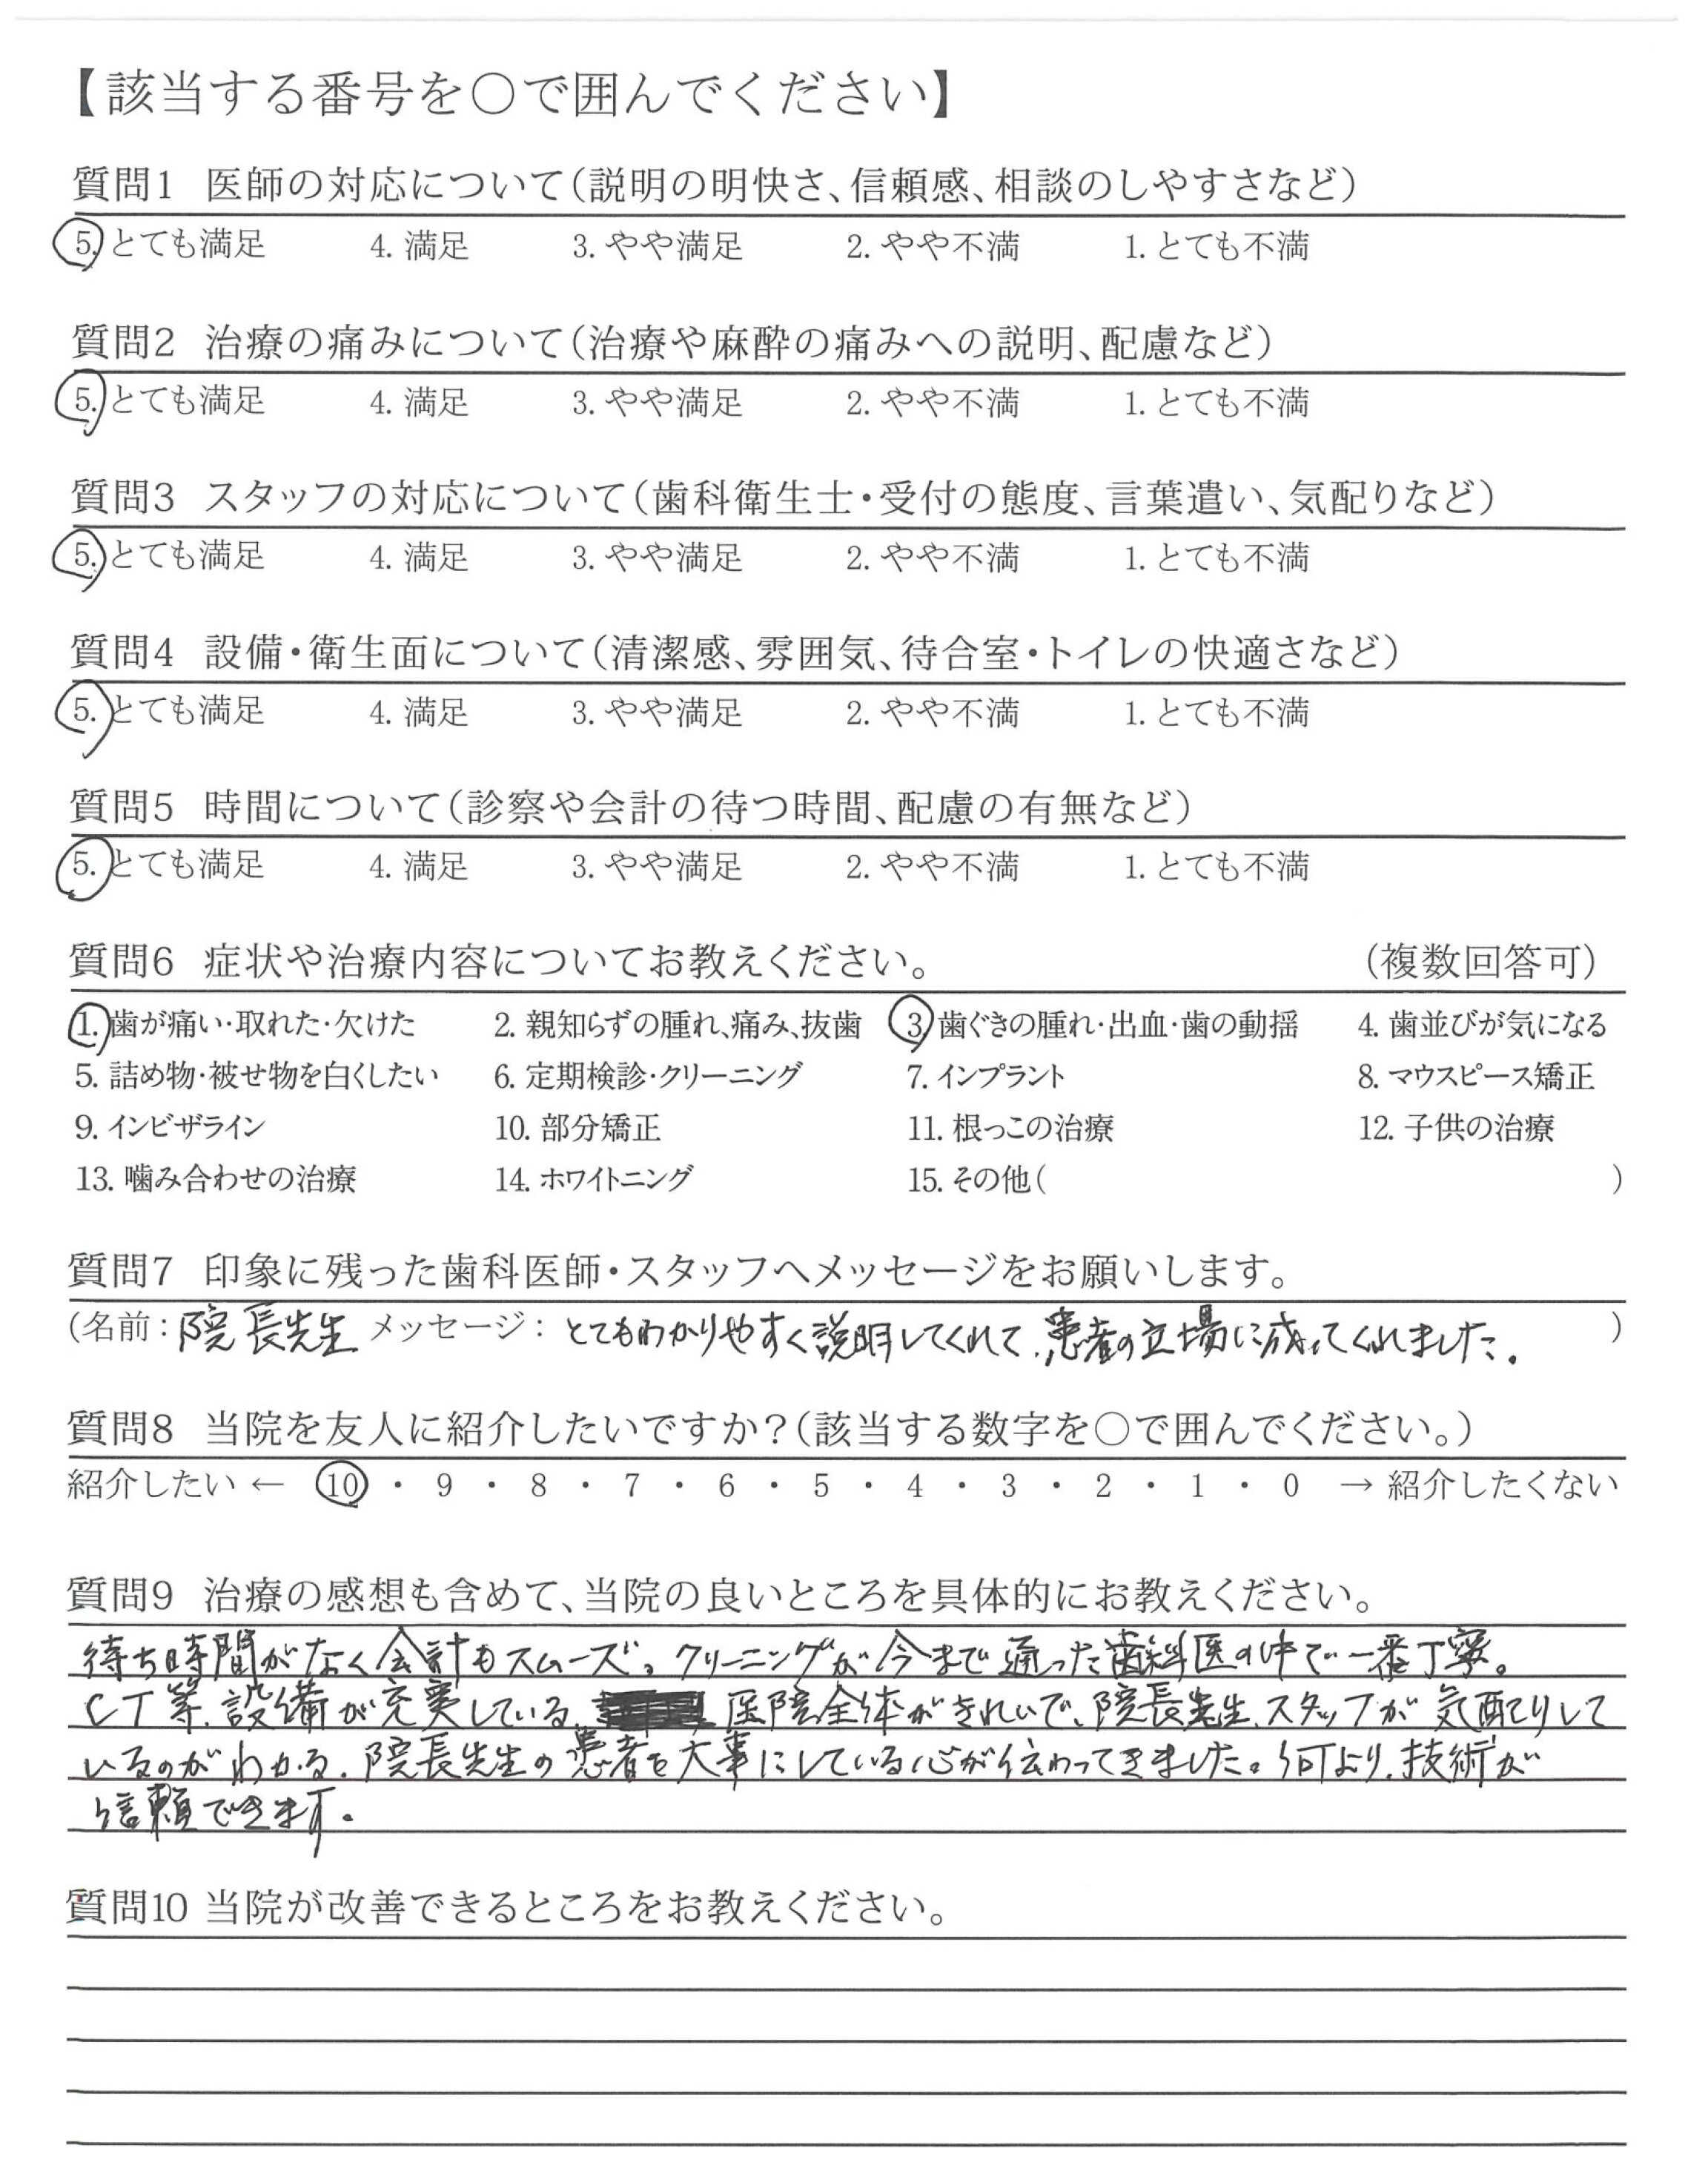 【該当する番号を○で囲んでください】
質問1 医師の対応について(説明の明快さ、信頼感、相談のしやすさなど)
5. とても満足 4. 満足 3. やや満足 2. やや不満 1. とても不満
質問2 治療の痛みについて(治療や麻酔の痛みへの説明、配慮など)
5. とても満足 4. 満足 3. やや満足 2. やや不満 1. とても不満
質問3 スタッフの対応について(歯科衛生士・受付の態度、言葉遣い、気配りなど)
5. とても満足 4. 満足 3. やや満足 2. やや不満 1. とても不満
質問4 設備・衛生面について(清潔感、雰囲気、待合室・トイレの快適さなど)
5. とても満足 4. 満足 3. やや満足 2. やや不満 1. とても不満
質問5 時間について(診察や会計の待つ時間、配慮の有無など)
5. とても満足 4. 満足 3. やや満足 2. やや不満 1. とても不満
質問6 症状や治療内容についてお教えください。 (複数回答可)
1. 歯が痛い・取れた・欠けた 2. 親知らずの腫れ、痛み、抜歯 3. 歯ぐきの腫れ・出血・歯の動揺 4. 歯並びが気になる
5. 詰め物・被せ物を白くしたい 6. 定期検診・クリーニング 7. インプラント 8. マウスピース矯正
9. インビザライン 10. 部分矯正 11. 根っこの治療 12. 子供の治療
13. 噛み合わせの治療 14. ホワイトニング 15. その他( )
質問7 印象に残った歯科医師・スタッフへメッセージをお願いします。
(名前:院長先生 メッセージ:とてもわかりやすく説明してくれて、患者の立場に成ってくれました。 )
質問8 当院を友人に紹介したいですか?(該当する数字を○で囲んでください。)
紹介したい ← 10 ・ 9 ・ 8 ・ 7 ・ 6 ・ 5 ・ 4 ・ 3 ・ 2 ・ 1 ・ 0 → 紹介したくない
質問9 治療の感想も含めて、当院の良いところを具体的にお教えください。
待ち時間がなく会計もスムーズ。クリーニングが今まで通った歯科医の中で一番丁寧。
CT等、設備が充実している、医院全体がきれいで、院長先生、スタッフが気配りして
いるのがわかる。院長先生の患者を大事にしている心が伝わってきました。何より、技術が
信頼できます。
質問10 当院が改善できるところをお教えください。